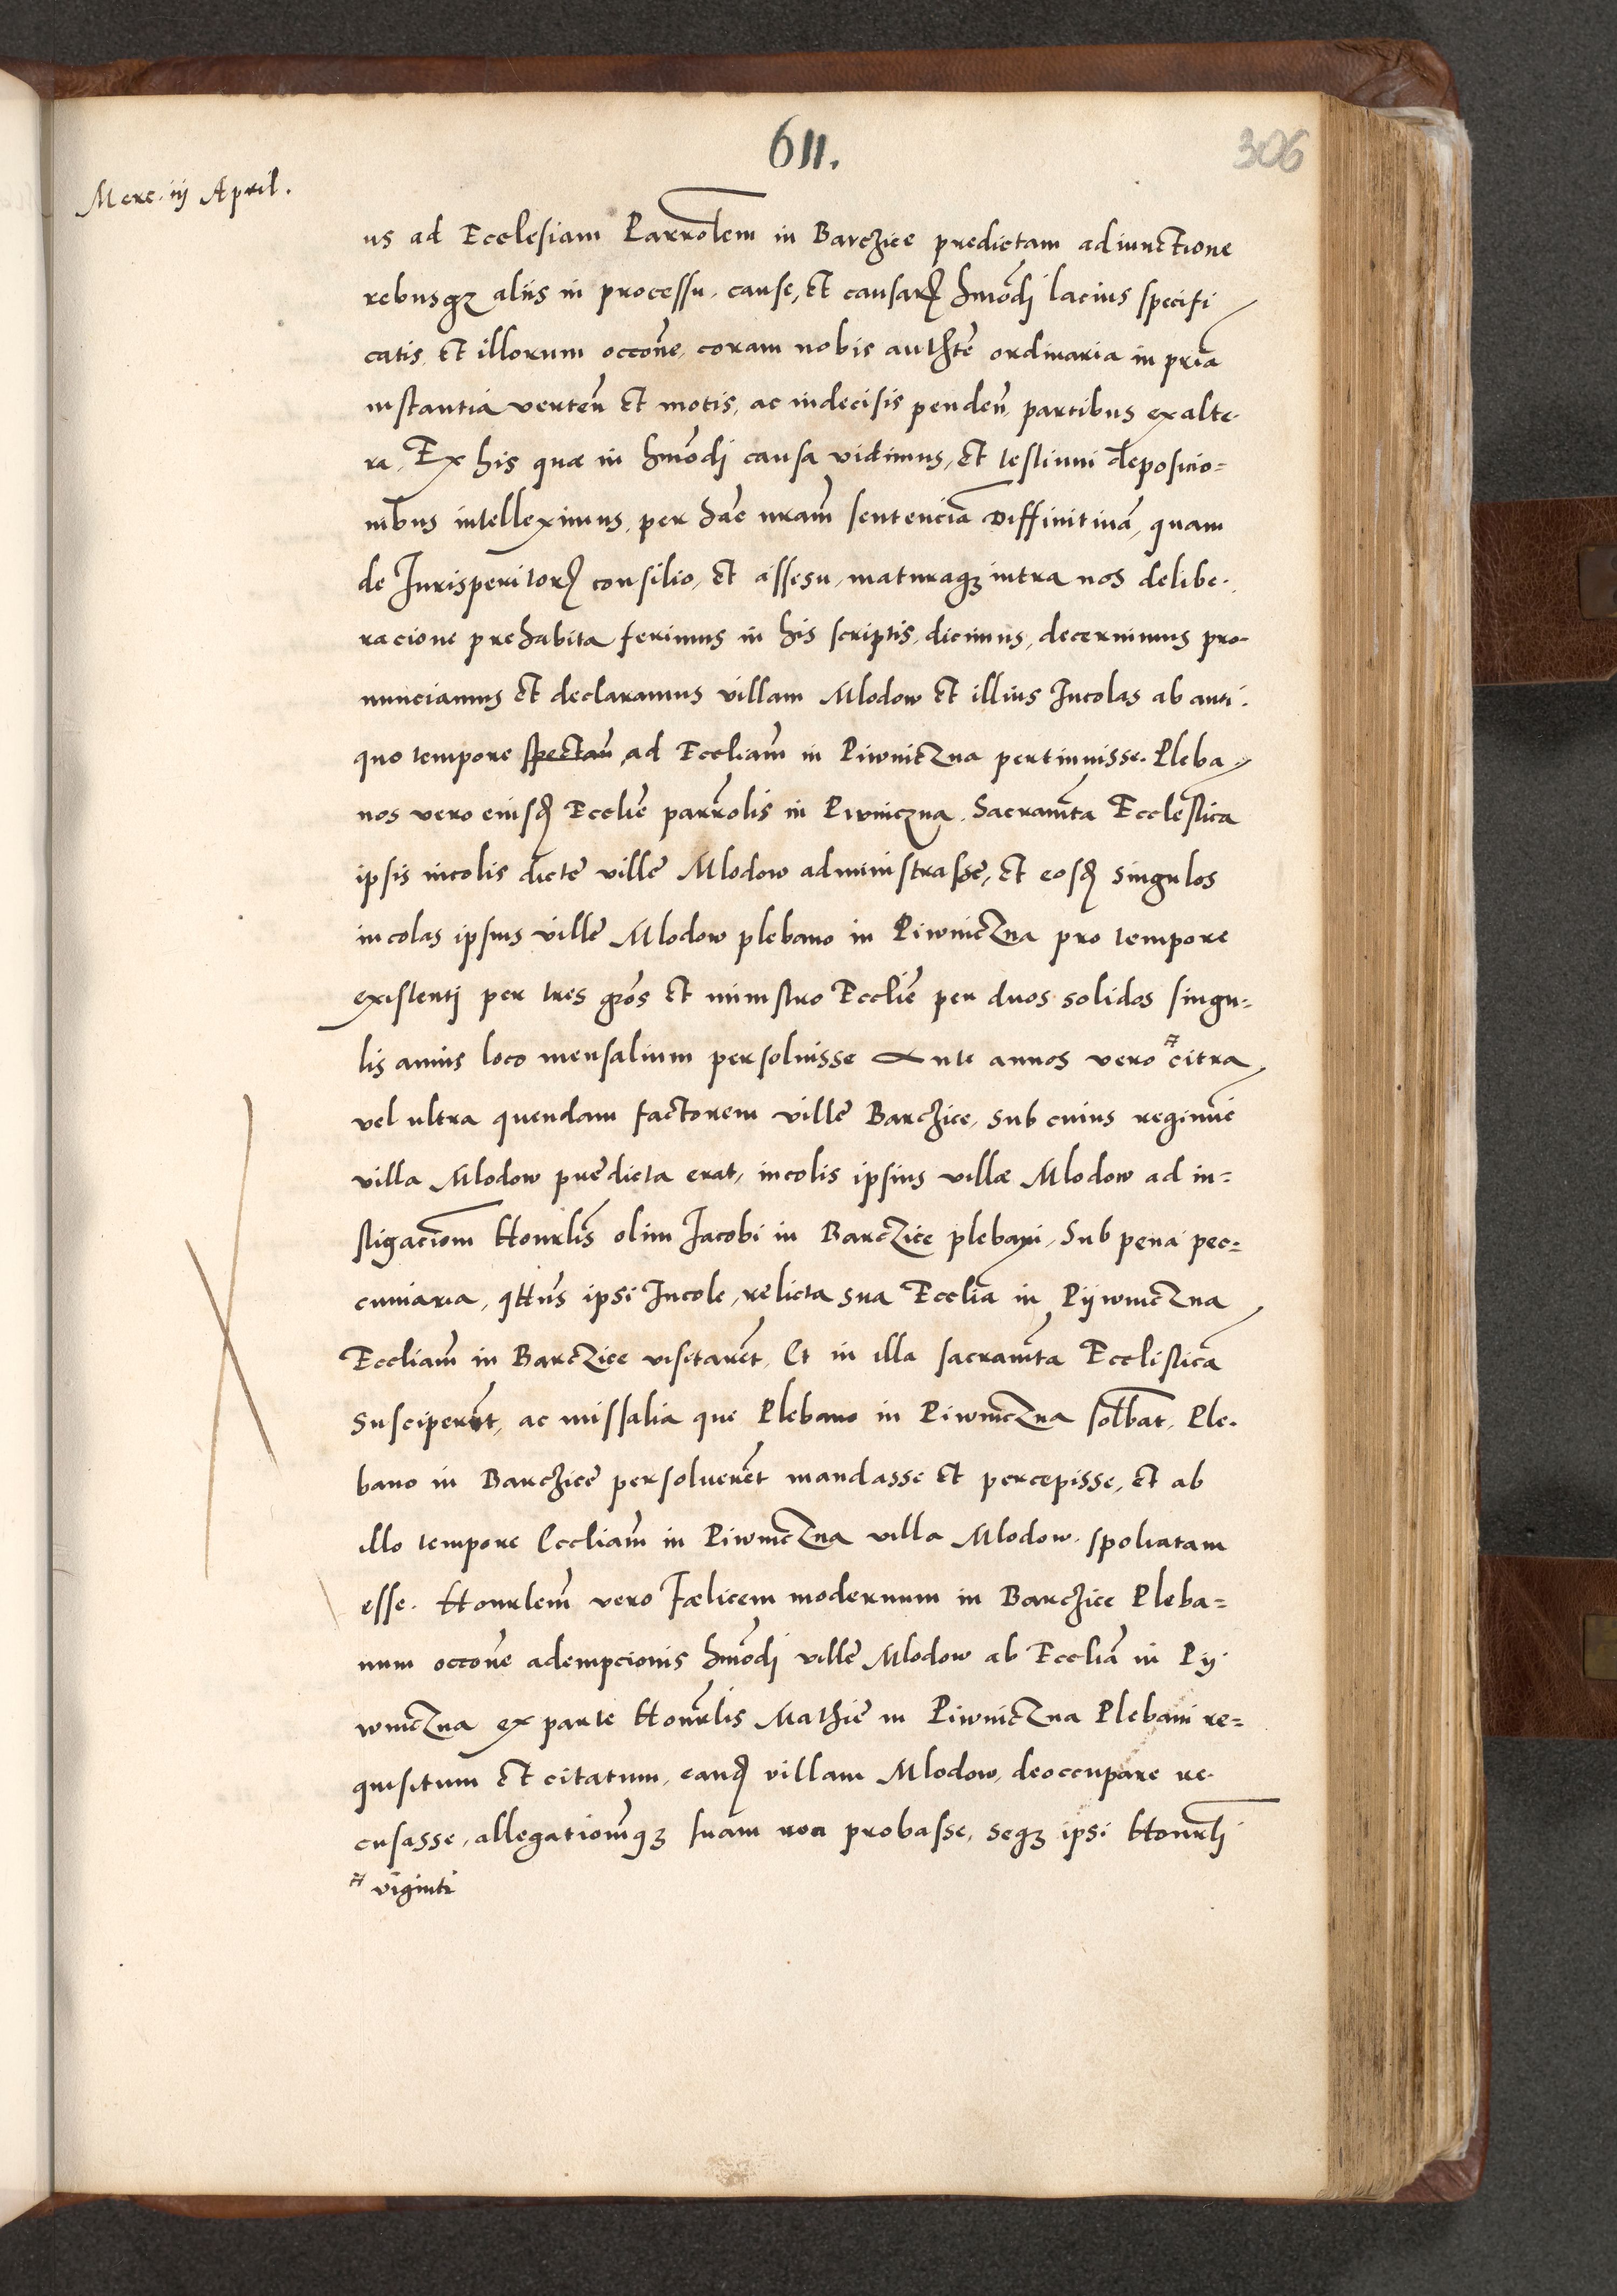 611.
306
Merc. iij April.
us ad Ecclesiam Parrolem in Barczice predictam adiunctione
rebusqz aliis in processu, cause, et causarum hmodi lacius specifi
catis, et illorum occone, coram nobis authte ordinaria in pria
instantia verten et motis, ac indecisis penden, partibus ex alte-
ra. Ex his quæ in hmodi causa vidimus, et testium deposicio=
nibus intelleximus, per hac nram sentencia Diffinitiua, quam
de Jurisperitorum consilio, et assesu, maturaqz intra nos delibe-
racione prehabita ferimus in his scriptis, dicimus, decernimus pro-
nunciamus et declaramus villam Mlodow et illius Incolas ab anti-
quo tempore spectan ad Eccliam in Piwniczna pertinuisse. Pleba-
nos vero eiusd Ecclie parrolis in Piwniczna, Sacramta Ecclestica
ipsis incolis dicte ville Mlodow administrasse, et eosd singulos
incolas ipsius ville Mlodow plebano in Piwniczna pro tempore
existentj per tres gros et ministro Ecclie per duos solidos singu=
lis annis loco mensalium persoluisse Ante annos vero # citra
vel ultra quendam factorem ville Barczice, sub cuius regimie
villa Mlodow predicta erat, incolis ipsius villæ Mlodow ad in=
stigaciom Honrlis olim Jacobi in Barczice plebani, Sub pena pec=
cuniaria, qttus ipsi Incole, relicta sua Ecclia in Pijwniczna
Eccliam in Barczice visitaret, Et in illa sacramta Ecclistica
Susciperent, ac missalia que Plebano in Piwniczna solbat, Ple-
bano in Barczice persolueret mandasse et percepisse, et ab
illo tempore Eccliam in Piwniczna villa Mlodow spoliatam
esse. Honrlem vero Fælicem modernum in Barczice Pleba=
num occone adempcionis hmodi ville Mlodow ab Ecclia in Pij
wniczna ex parte Honrlis Mathie in Piwniczna Plebani re=
quisitum et citatum, eand villam Mlodow, deoccupare re-
cusasse, allegatiomqz suam non probasse, seqz ipsi Honrli
# viginti